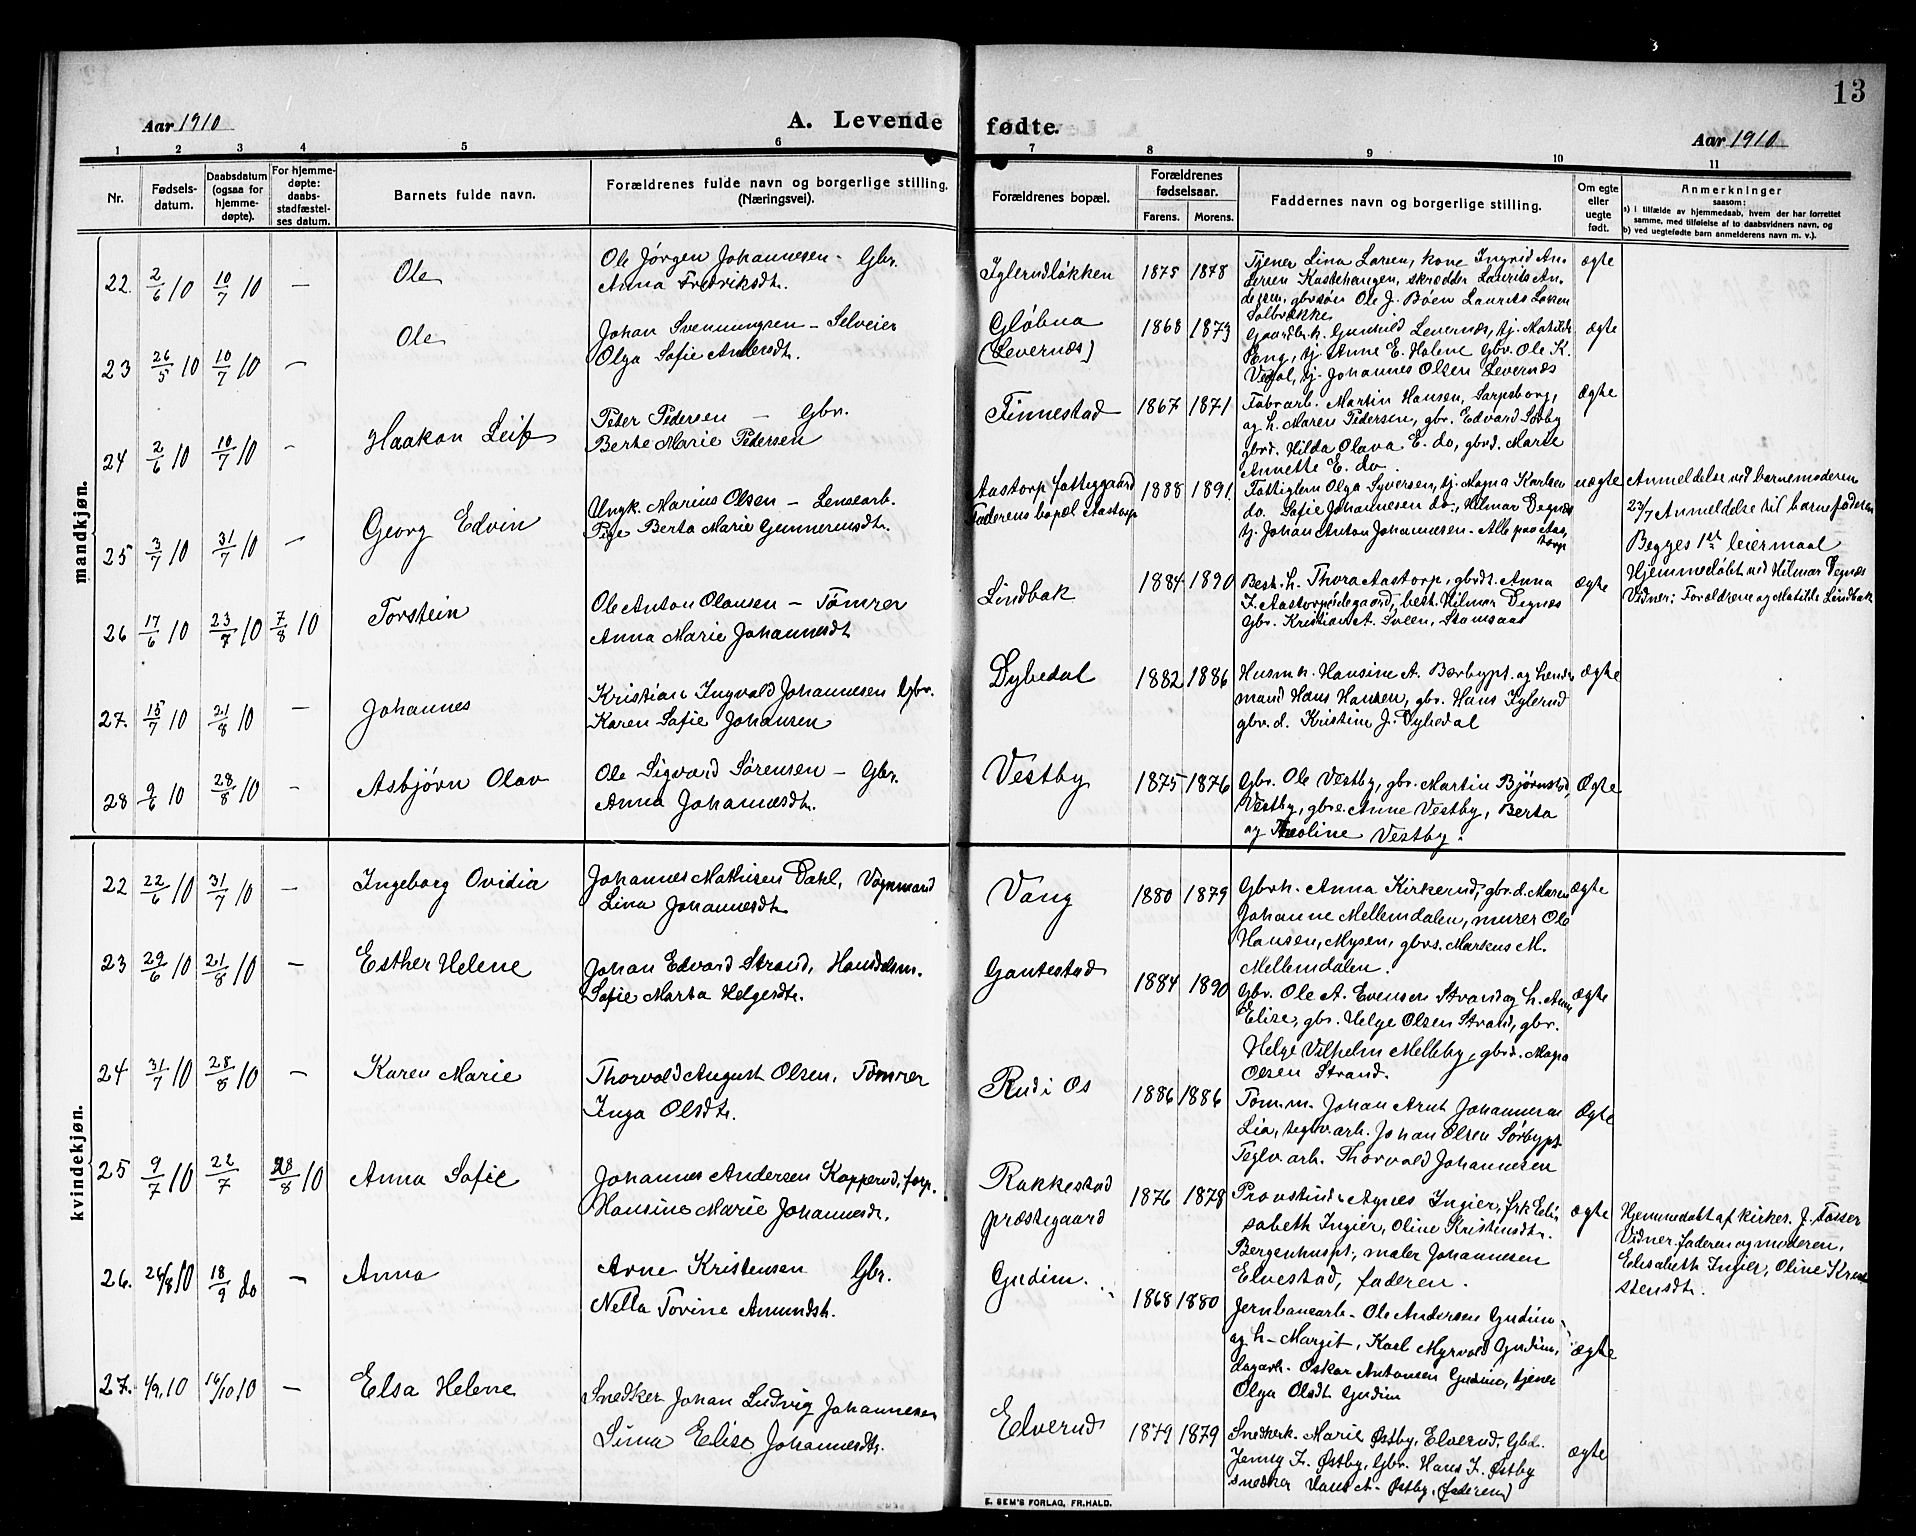 13
Aar 1910
A. Levende fødte.
Aar 1910
1 2 3 4 5 6 7 8 9 10 11
Nr.
Fødsels-
datum.
Daabsdatum
(ogsaa for
hjemme-
døpte).
For hjemme-
døpte:
daabs-
stadfæstel-
ses datum.
Barnets fulde navn.
Forældrenes fulde navn og borgerlige stilling.
(Næringsvei).
Forældrenes bopæl.
Forældrenes
fødselsaar.
Farens. Morens.
Faddernes navn og borgerlige stilling.
Om egte
eller
uegte
født.
Anmerkninger
saasom:
a) i tilfælde av hjemmedaab, hvem der har forrettet
samme, med tilføielse af to daabsvidners navn, og
b) ved uegtefødte barn anmelderens navn m. v.).
mandkjøn.
22. 2/6 10 10/7 10 — Ole
Ole Jørgen Johannesen - Gbr.
Anna Fredriksdt.
Iglerudløkken 1875 1878
Tjener Lina Larsen, kone Ingrid An-
dersen Kastehangen, skrædder Laurits An-
dersen, gbrsøn Ole J. Bøen Laurits Løken
Solbrække
ægte
23 26/5 10 10/7 10 — Ole
Johan Svennungsen - Selveier
Olga Sofie Andersdt.
Gløbna
(Levernæs)
1868 1873
Gaardbr.h. Gunhild Levernæs, tj. Matilde
Pong, tj. Anne E. Holene Gbr. Ole K.
tj. Johannes Olsen Levernæs
ægte
24 2/6 10 10/7 10 — Haakon Leif
Peter Pedersen — Gbr.
Berte Marie Pedersen
Finnestad 1867 1871
Fabrarb. Martin Hansen, Sarpsborg,
og h. Maren Pedersen, gbr. Edvard Sørby
gbrd. Hilda Olava E. do, gbrd. Marie
Annette E. do.
Ægte
25 3/7 10 31/7 10 — Georg Edvin
Ungk. Marius Olsen - Lensearb.
Pige Berta Marie Gunneriusdt.
Aastorp fattiggaard
Faderens bopæl Aastorp
1888 1891
Fattiglem Olga Syversen, tj. Magna Karlsen
do. Sofie Johannesen do., Hilmar Degnæs
tj. Johan Anton Johannesen - Alle paa Aas-
torp
uægte
Anmeldelse ved barnemoderen
23/7 Anmeldelse til barnefaderen
Begges 1ste leiermaal
26 17/6 10 23/7 10 7/8 10 Torstein
Ole Anton Olausen - Tømrer
Anna Marie Johannesdt
Lindbak 1884 1890
Best. h. Thora Aastorp, gbrdt. Anna
J. Aastorpødegaard, best. Hilmar Degnæs
Gbr. Kristian A. Sveen, Stomsaas
ægte
Hjemmedøbt ved Hilmar Degnæs
Vidner: Forældrene og Matilde Lindbak
27. 15/7 10 21/8 10 — Johannes
Kristian Ingvald Johannesen Gbr.
Karen Sofie Johansen
Dybedal 1882 1886
Husm.h. Hansine A. Berbypl. og
mand Hans Hansen, gbr. Hans Iglerud
gbr.d. Kristine J. Dybedal
ægte
28 9/6 10 28/8 10 — Asbjørn Olav
Ole Sigvard Sørensen - Gbr.
Anna Johannesdt.
Vestby 1875 1876
Gbr. Ole Vestby, gbr. Martin Bjørnstad,
Vestby, gbre. Anne Vestby, Berta
og Theoline Vestby.
Ægte
kvindekjøn.
22 22/6 10 31/7 10 — Ingeborg Ovidia
Johannes Mathisen Dahl, Vognmand
Lina Johannesdt.
Vang 1880 1879
Gbrh. Anna Kirkerud, gbr.d. Maren
Johanne Mellemdalen, murer Ole
Hansen, Mysen, gbrs. Markus M.
Mellemdalen.
ægte
23 29/6 10 21/8 10 — Esther Helene
Johan Edvard Strand, Handelsm.
Sofie Marta Helgesdt.
Gautestad 1884 1890
Gbr. Ole A. Evensen Strand og h. Anne
Elise, gbr. Helge Olsen Strand, gbr.
Helge Vilhelm Melleby, gbrd. Magna
Olsen Strand.
ægte
24 31/7 10 28/8 10 — Karen Marie
Thorvald August Olsen, Tømrer
Inga Olsdt.
Rud i Os 1886 1886
Tøm.m. Johan Arnt Johannesen
Lia, teglv.arb. Johan Olsen Sørbypl.
Teglv.arb. Thorvald Johannesen
Ægte
25 9/7 10 22/7 28/8 10 Anna Sofie
Johannes Andersen Kopperud, forp.
Hansine Marie Johannesdt.
Rakkestad
præstegaard
1876 1878
Provstinde Agnes Ingier, frk Elis-
sabeth Ingier, Oline Kristensdt.
Bergenhuspl., maler Johannesen
Elvestad, faderen.
ægte
Hjemmedøbt af kirkes. J. Tosser
Vidner faderen og moderen,
Elisabeth Ingier, Oline Kri
stensdt.
26. 24/8 10 18/9 do — Anna
Arne Kristensen Gbr.
Nella Tovine Amundsdt.
Gudim. 1868 1880
Jernbanearb. Ole Andersen Gudim
og h. Margit, Karl Myrvold Gudim,
dagarb. Oskar Antonsen Gudim, tjener
Olga Olsdt Gudim
ægte
27. 4/9 10 16/10 10 — Elsa Helene
Snedker Johan Ludvig Johannesen
Lina Elise Johannesdt.
Elverud 1879 1879
Snedkerk. Marie Østby, Elverud, Gbd.
Jenny J. Østby, Gbr. Hans J. Østby
snedker Hans A. Østby. (faderen)
ægte
E. SEM'S FORLAG, FR.HALD.